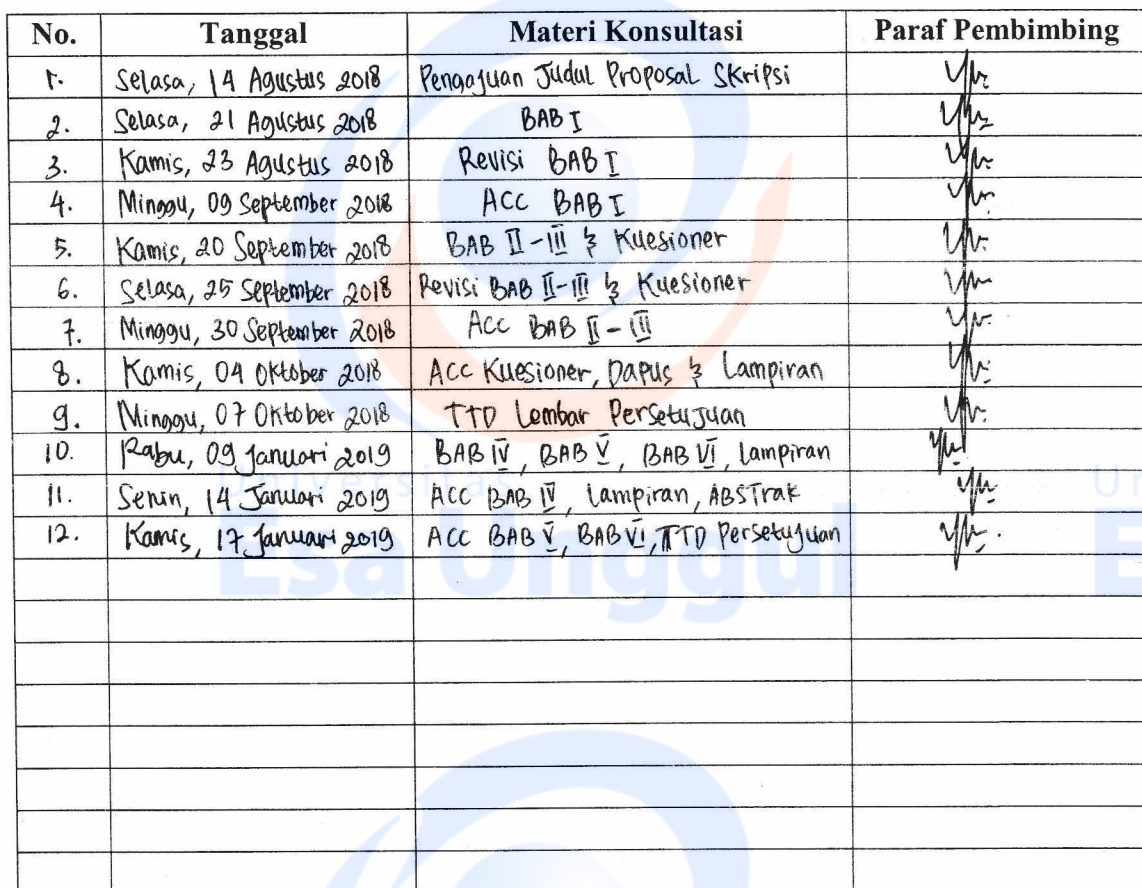 No. Tanggal Materi Konsultasi Paraf Pembimbing
1. Selasa, 14 Agustus 2018 Pengajuan Judul Proposal Skripsi
2. Selasa, 21 Agustus 2018 BAB I
3. Kamis, 23 Agustus 2018 Revisi BAB I
4. Minggu, 09 September 2018 ACC BAB I
5. Kamis, 20 September 2018 BAB II - III & Kuesioner
6. Selasa, 25 September 2018 Revisi BAB II - III & Kuesioner
7. Minggu, 30 September 2018 Acc BAB II - III
8. Kamis, 04 Oktober 2018 ACC Kuesioner, Dapus & Lampiran
9. Minggu, 07 Oktober 2018 TTD Lembar Persetujuan
10. Rabu, 09 Januari 2019 BAB IV, BAB V, BAB VI, Lampiran
11. Senin, 14 Januari 2019 ACC BAB IV, Lampiran, ABSTrak
12. Kamis, 17 Januari 2019 ACC BAB V, BAB VI, TTD Persetujuan
Universitas
Esa Unggul